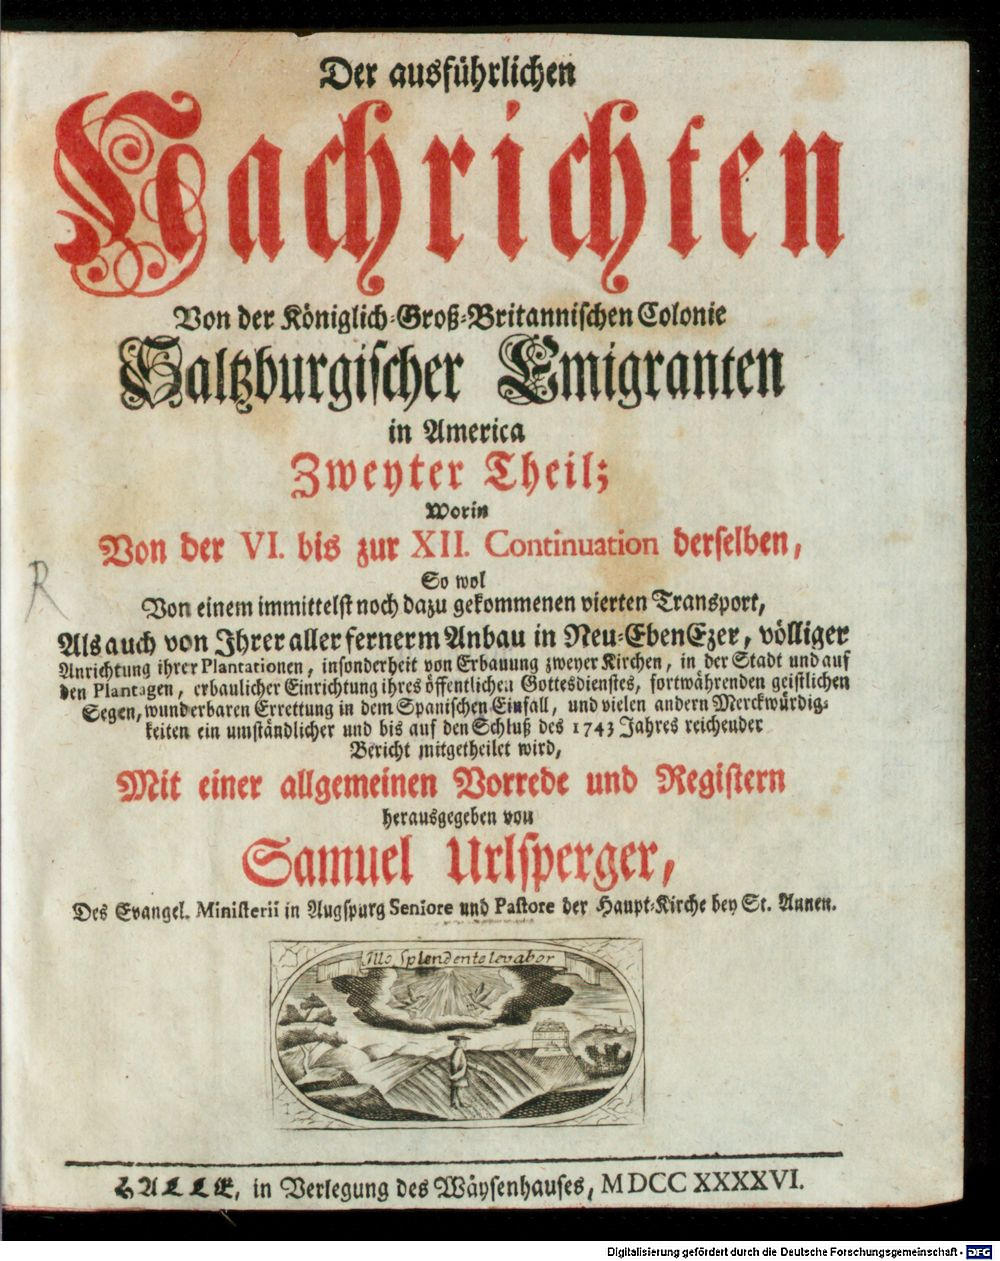 Der ausführlichen
Nachrichten
Von der Königlich-Groß-Britannischen Colonie
Saltzburgischer Emigranten
in America
Zweyter Theil;
Worin
Von der VI. bis zur XII. Continuation derselben,
So wol
Von einem immittelst noch dazu gekommenen vierten Transport,
Als auch von Ihrer aller fernerm Anbau in Neu-EbenEzer, völliger
Anrichtung ihrer Plantationen, insonderheit von Erbauung zweyer Kirchen, in der Stadt und auf
den Plantagen, erbaulicher Einrichtung ihres öffentlichen Gottesdienstes, fortwährenden geistlichen
Segen, wunderbaren Errettung in dem Spanischen Einfall, und vielen andern Merckwürdig-
keiten ein umständlicher und bis auf den Schluß des 1743 Jahres reichender
Bericht mitgetheilet wird,
Mit einer allgemeinen Vorrede und Registern
herausgegeben von
Samuel Urlsperger,
Des Evangel. Ministerii in Augspurg Seniore und Pastore der Haupt-Kirche bey St. Annen.
R
Illo splendente levabor
HALLE, in Verlegung des Wäysenhauses, MDCCXXXXVI.
Digitalisierung gefördert durch die Deutsche Forschungsgemeinschaft - DFG